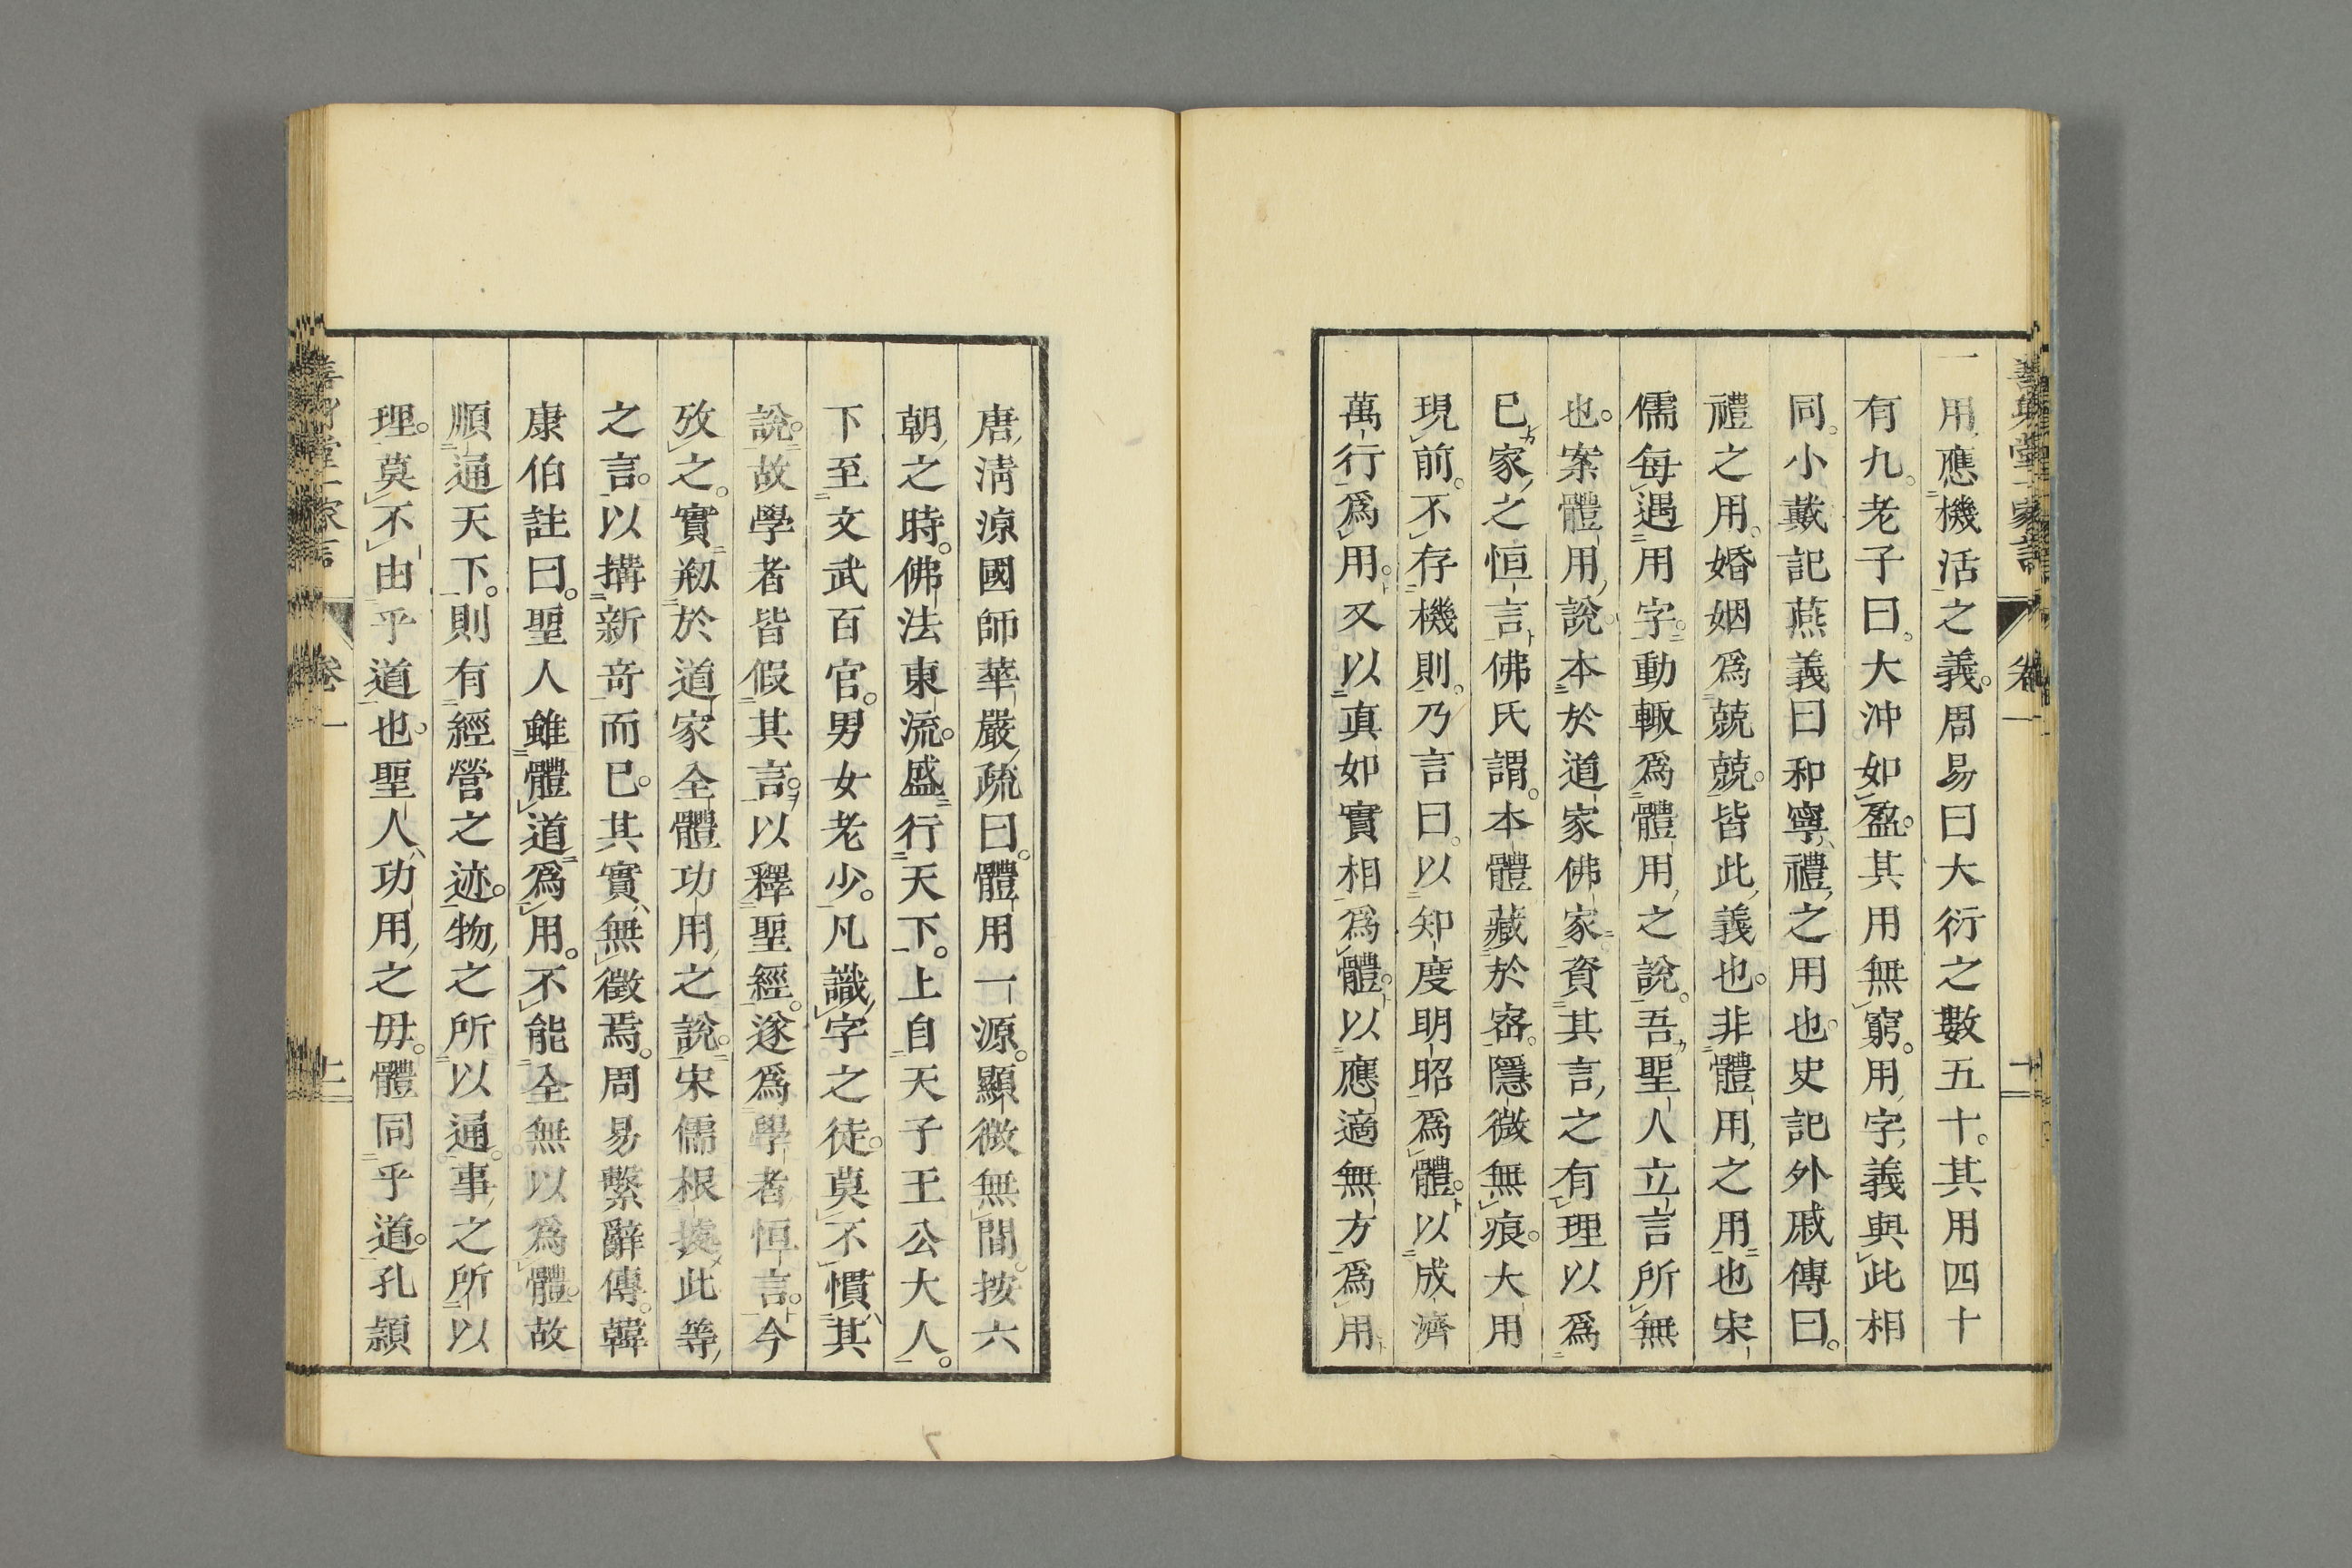 一用應機活之義。周易曰大衍之數五十。其用四十
有九。老子曰。大沖如盈。其用無窮。用字義與此相
同。小戴記燕義曰和寧禮之用也。史記外戚傳曰。
禮之用。婚姻爲兢兢。皆此義也。非體用之用也宋
儒每遇用字。動輙爲體用之說。吾聖人立言所無
也。案體用說本於道家佛家資其言之有理以爲
已家之恒言佛氏謂。本體藏於宻。隱微無痕。大用
現前。不存機則。乃言曰。以知度明昭爲體。以成濟
萬行爲用。又以真如實相爲體。以應適無方爲用
唐淸涼國師華嚴疏曰。體用一源。顯微無間。按六
朝之時。佛法東流。盛行天下。上自天子王公大人。
下至文武百官。男女老少。凡識字之徒。莫不慣其
說。故學者皆假其言。以釋聖經。遂爲學者恒言。今
攷之。實剏於道家全體功用之說。宋儒根據此等
之言。以搆新竒而已。其實無徵焉。周易繫辭傳。韓
康伯註曰。聖人雖體道爲用。不能全無以爲體。故
順通天下。則有經營之迹。物之所以通。事之所以
理。莫不由乎道也。聖人功用之毋。體同乎道。孔頴
卷一